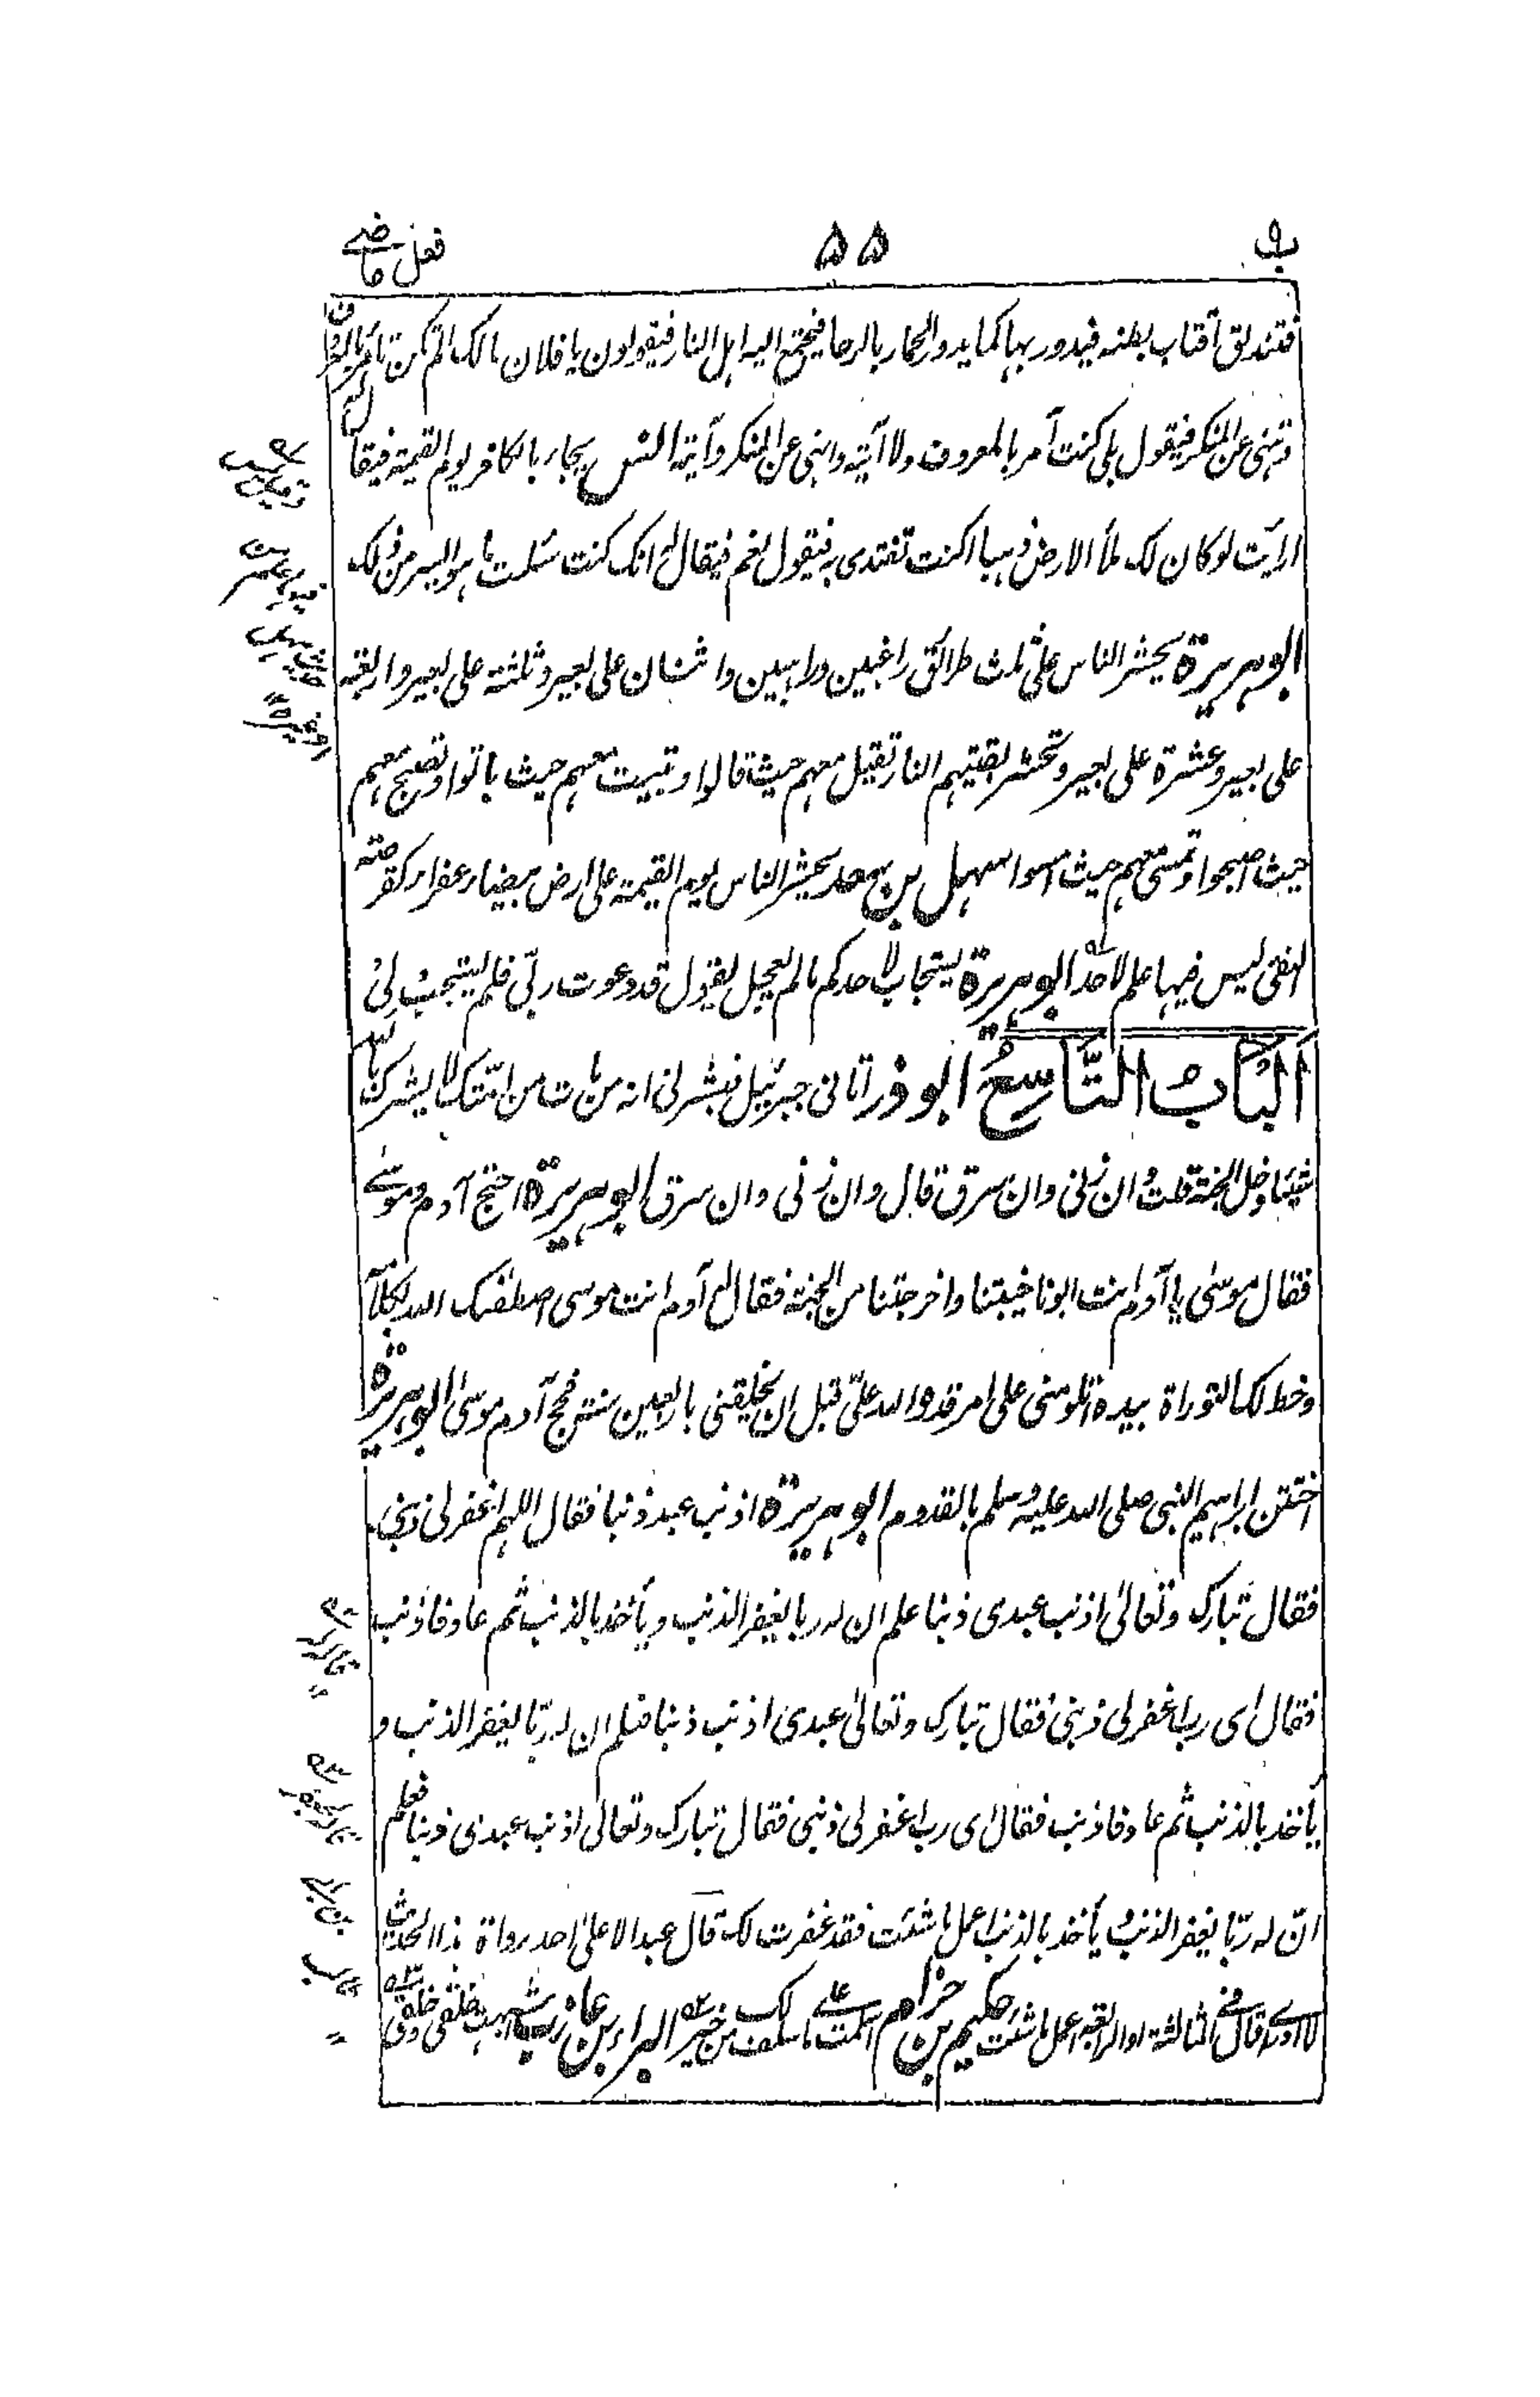 ب ٩ ۵۵ فعل ماضی
فتندلق اقتاب بطنه فیدور بها کما یدور الحمار بالرحا فیجتمع الیه اهل النار فیقولون یا فلان مالک الم تکن تأمر بالمعروف
وتنهی عن المنکر فیقول بلی کنت آمر بالمعروف ولا آتیه وانهی عن المنکر وآتیه انس یجاء بالکافر یوم القیمة فیقال له
ارایت لو کان لک ملأ الارض ذهبا اکنت تفتدی به فیقول نعم فیقال له انک کنت سئلت ما هو الیسر من ذلک
ابو هریرة یحشر الناس علی ثلث طرائق راغبین وراهبین واثنان علی بعیر وثلثة علی بعیر واربعة
علی بعیر وعشرة علی بعیر وتحشر بقیتهم النار تقیل معهم حیث قالوا وتبیت معهم حیث باتوا وتصبح معهم
حیث اصبحوا وتمسی معهم حیث امسوا سهل بن سعد یحشر الناس یوم القیمة علی ارض بیضاء عفراء کقرصة
النقی لیس فیها علم لاحد ابو هریرة یستجاب لاحدکم ما لم یعجل یقول قد دعوت ربی فلم یستجب لی
اَلْبَابُ التَّاسِعُ ابو ذر اتانی جبرئیل فبشرنی انه من مات من امتک لا یشرک بالله
شیئا دخل الجنة قلت وان زنی وان سرق قال وان زنی وان سرق ابو هریرة احتج آدم وموسی
فقال موسی یا آدم انت ابونا خیبتنا واخرجتنا من الجنة فقال له آدم انت موسی اصطفک الله بکلامه
وخط لک التوراة بیده اتلومنی علی امر قدره الله علیّ قبل ان یخلقنی باربعین سنة فحج آدم موسی ابو هریرة
اختتن ابراهیم النبی صلی الله علیه وسلم بالقدوم ابو هریرة اذنب عبد ذنبا فقال اللهم اغفر لی ذنبی
فقال تبارک وتعالی اذنب عبدی ذنبا علم ان له ربا یغفر الذنب ویأخذ بالذنب ثم عاد فاذنب
فقال ای رب اغفر لی ذنبی فقال تبارک وتعالی عبدی اذنب ذنبا فعلم ان له ربّا یغفر الذنب و
یأخذ بالذنب ثم عاد فاذنب فقال ای رب اغفر لی ذنبی فقال تبارک وتعالی اذنب عبدی ذنبا فعلم
انّ له ربّا یغفر الذنب ویأخذ بالذنب اعمل ما شئت فقد غفرت لک قال عبد الاعلی احد رواة هذا الحدیث
لا ادری اقال فی الثالثة او الرابعة اعمل ما شئت حکیم بن حزام اسلمت علی ما سلف لک من خیر البراء بن عازب اشبهت خلقی وخلقی